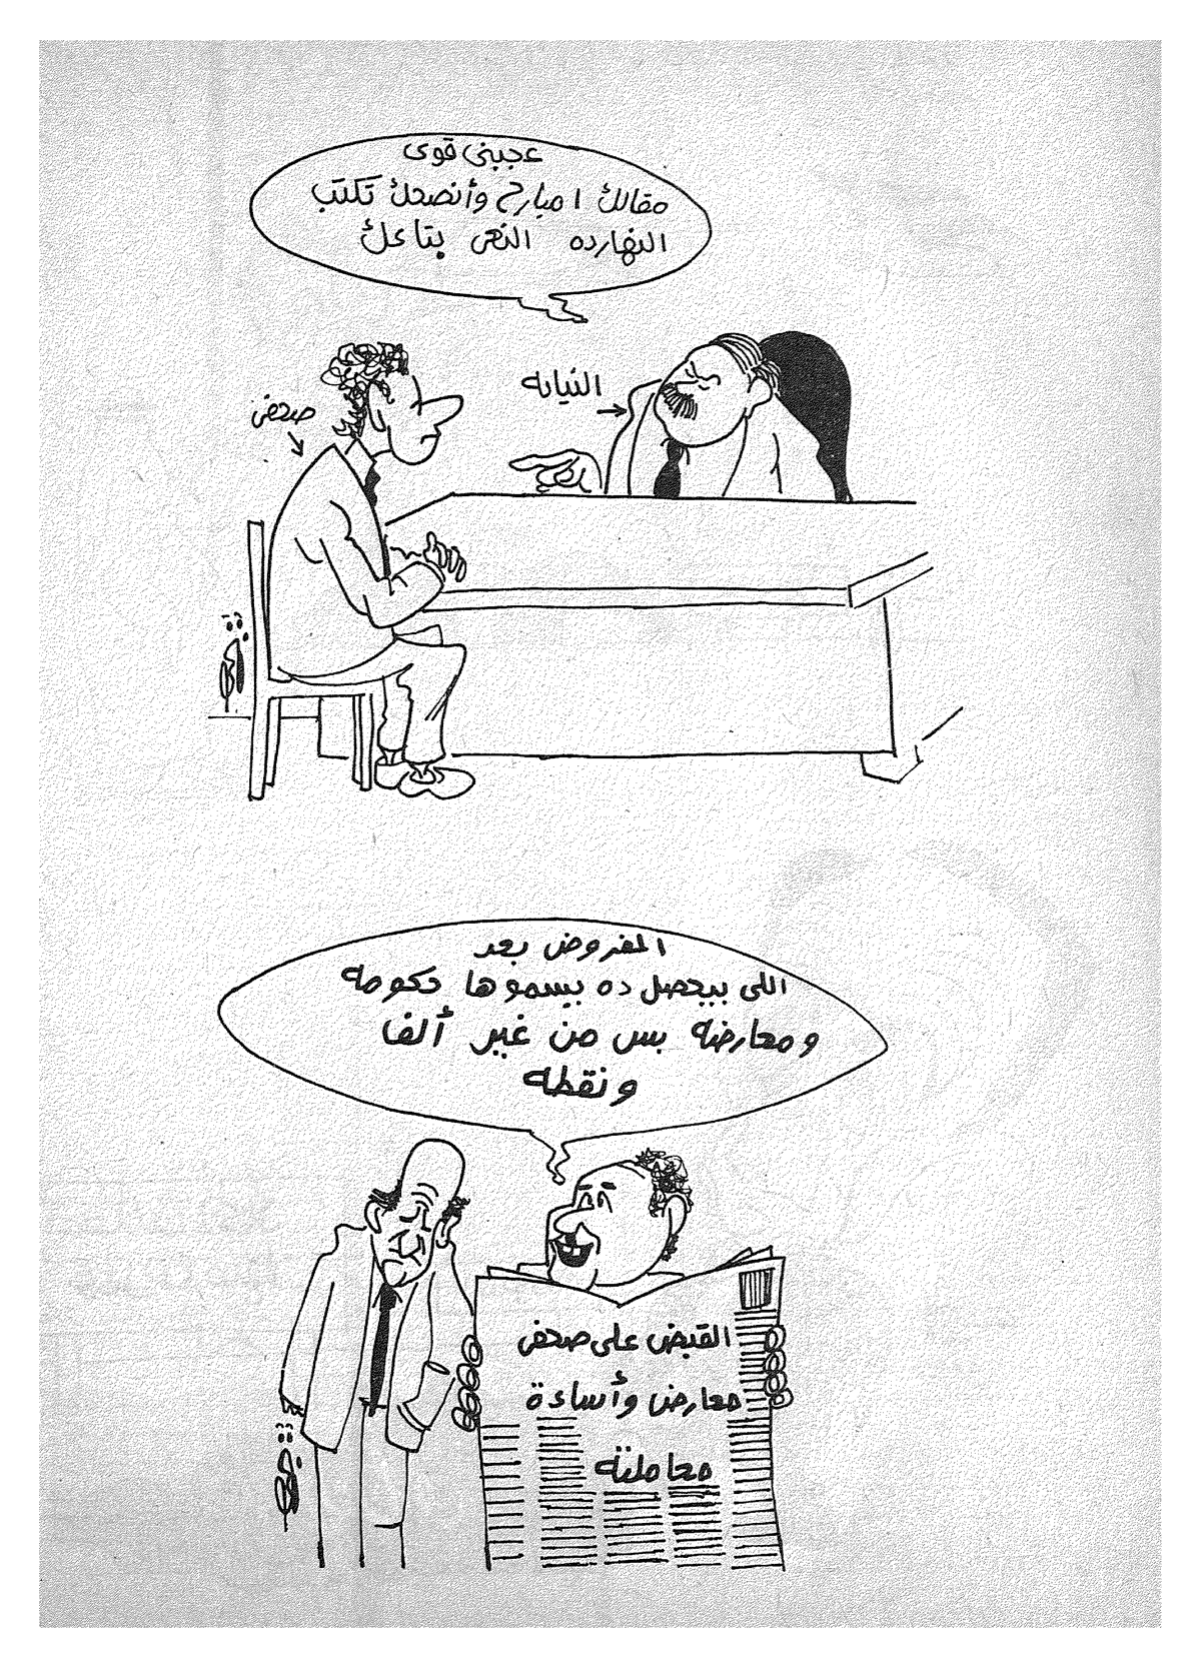 عجبنى قوى
مقالك امبارح وأنصحك تكتب
النهارده النعى بتاعك
النيابه
صحفى
المفروض بعد
اللى بيحصل ده يسموها حكومه
ومعارضه بس من غير ألف
ونقطه
القبض على صحفى
معارض وأساءة
معاملته